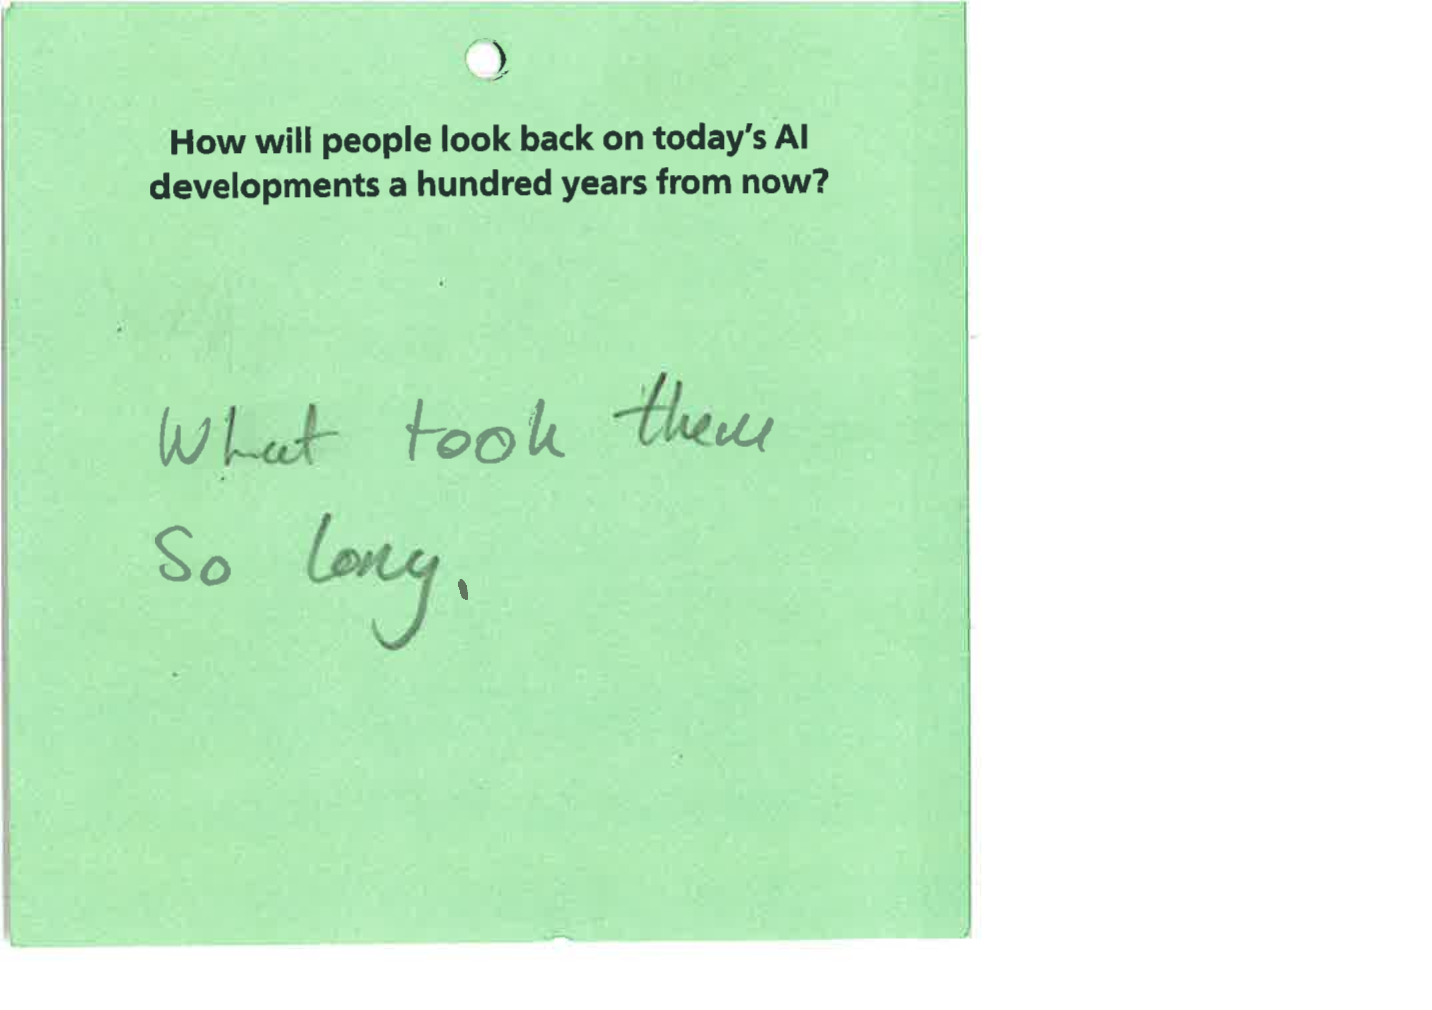 How will people look back on today's AI
developments a hundred years from now?
What took them
So long.